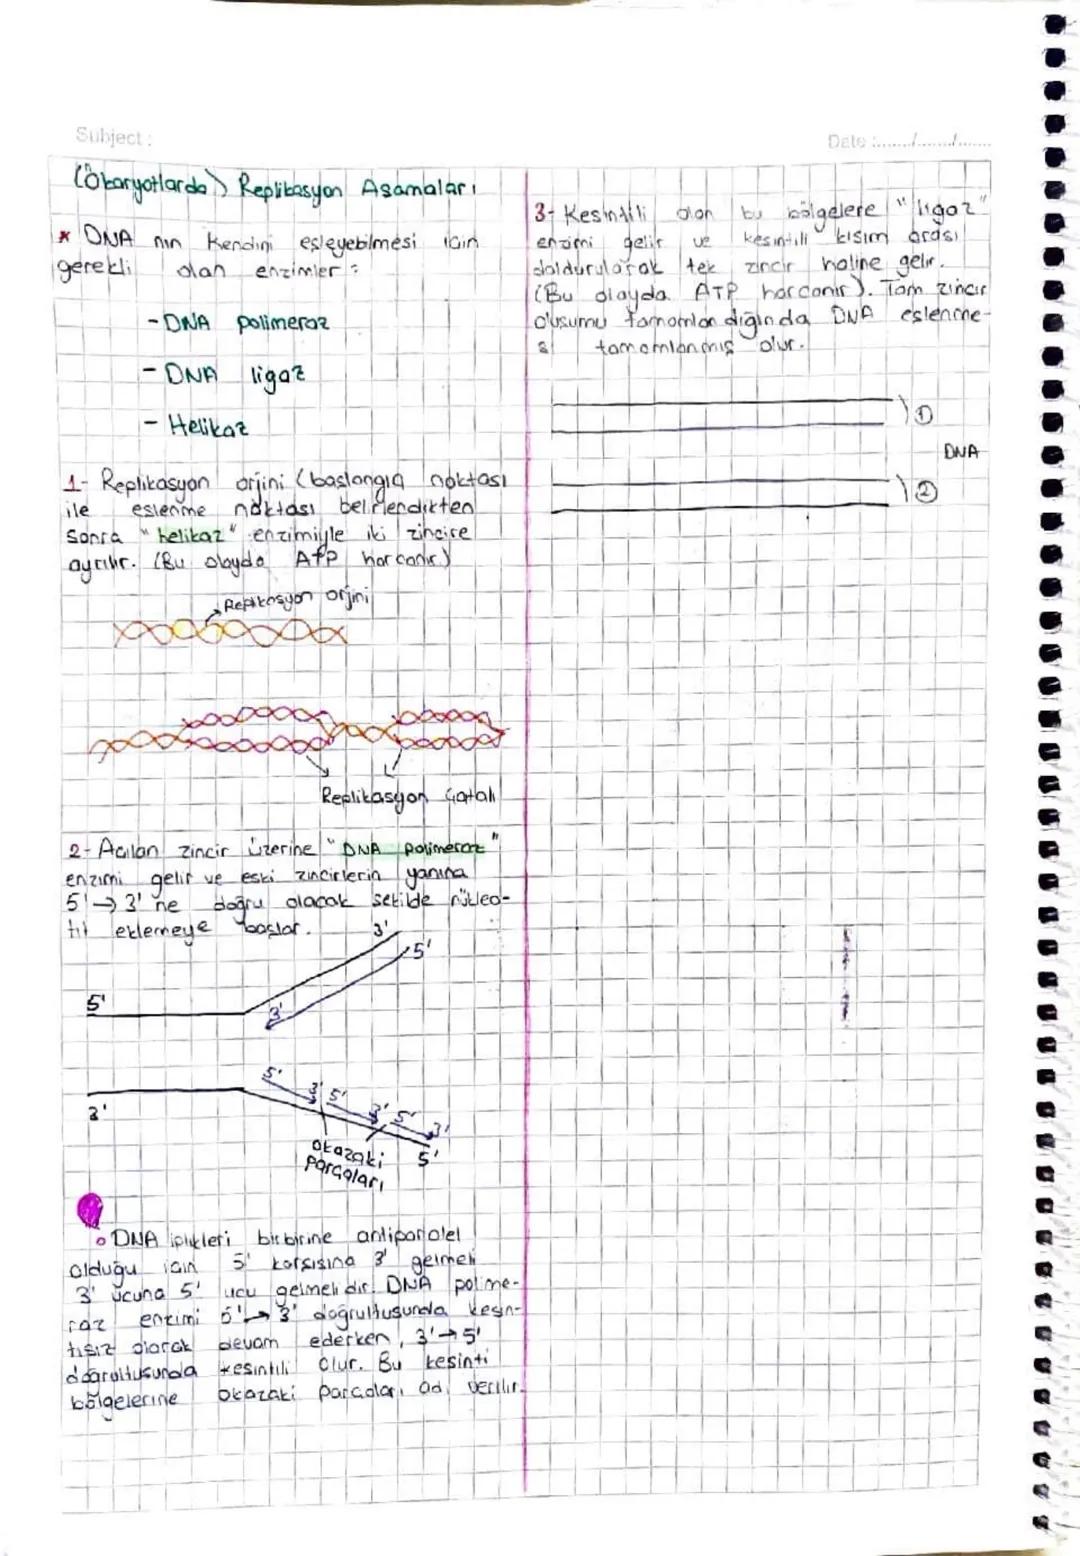 Subject :
Date :......./......./.......
(Ökaryotlarda) Replikasyon Aşamaları
* DNA nın kendini eşleyebilmesi için
gerekli olan enzimler :
- DNA polimeraz
- DNA ligaz
- Helikaz
1- Replikasyon orjini (başlangıç noktası
ile eşlenme noktası belirlendikten
sonra "helikaz" enzimiyle iki zincire
ayrılır. (Bu olayda ATP harcanır.)
Replikasyon orjini
Replikasyon çatalı
2- Açılan zincir üzerine "DNA polimeraz"
enzimi gelir ve eski zincirlerin yanına
5' → 3' ne doğru olacak şekilde nükleo-
tit eklemeye başlar.
3'
5'
5'
3'
5'
3'
5'
3'
5'
3'
3'
5'
Okazaki
parçaları
DNA iplikleri birbirine antiparalel
olduğu için 5' karşısına 3' gelmeli
3' ucuna 5' ucu gelmelidir. DNA polime-
raz enzimi 5' → 3' doğrultusunda kesin-
tisiz olarak devam ederken, 3' → 5'
doğrultusunda kesintili olur. Bu kesinti
bölgelerine okazaki parçaları adı verilir.
3- Kesintili olan bu bölgelere "ligaz"
enzimi gelir ve kesintili kısım arası
doldurularak tek zincir haline gelir.
(Bu olayda ATP harcanır). Tam zincir
oluşumu tamamlandığında DNA eşlenme-
si tamamlanmış olur.
1
DNA
2